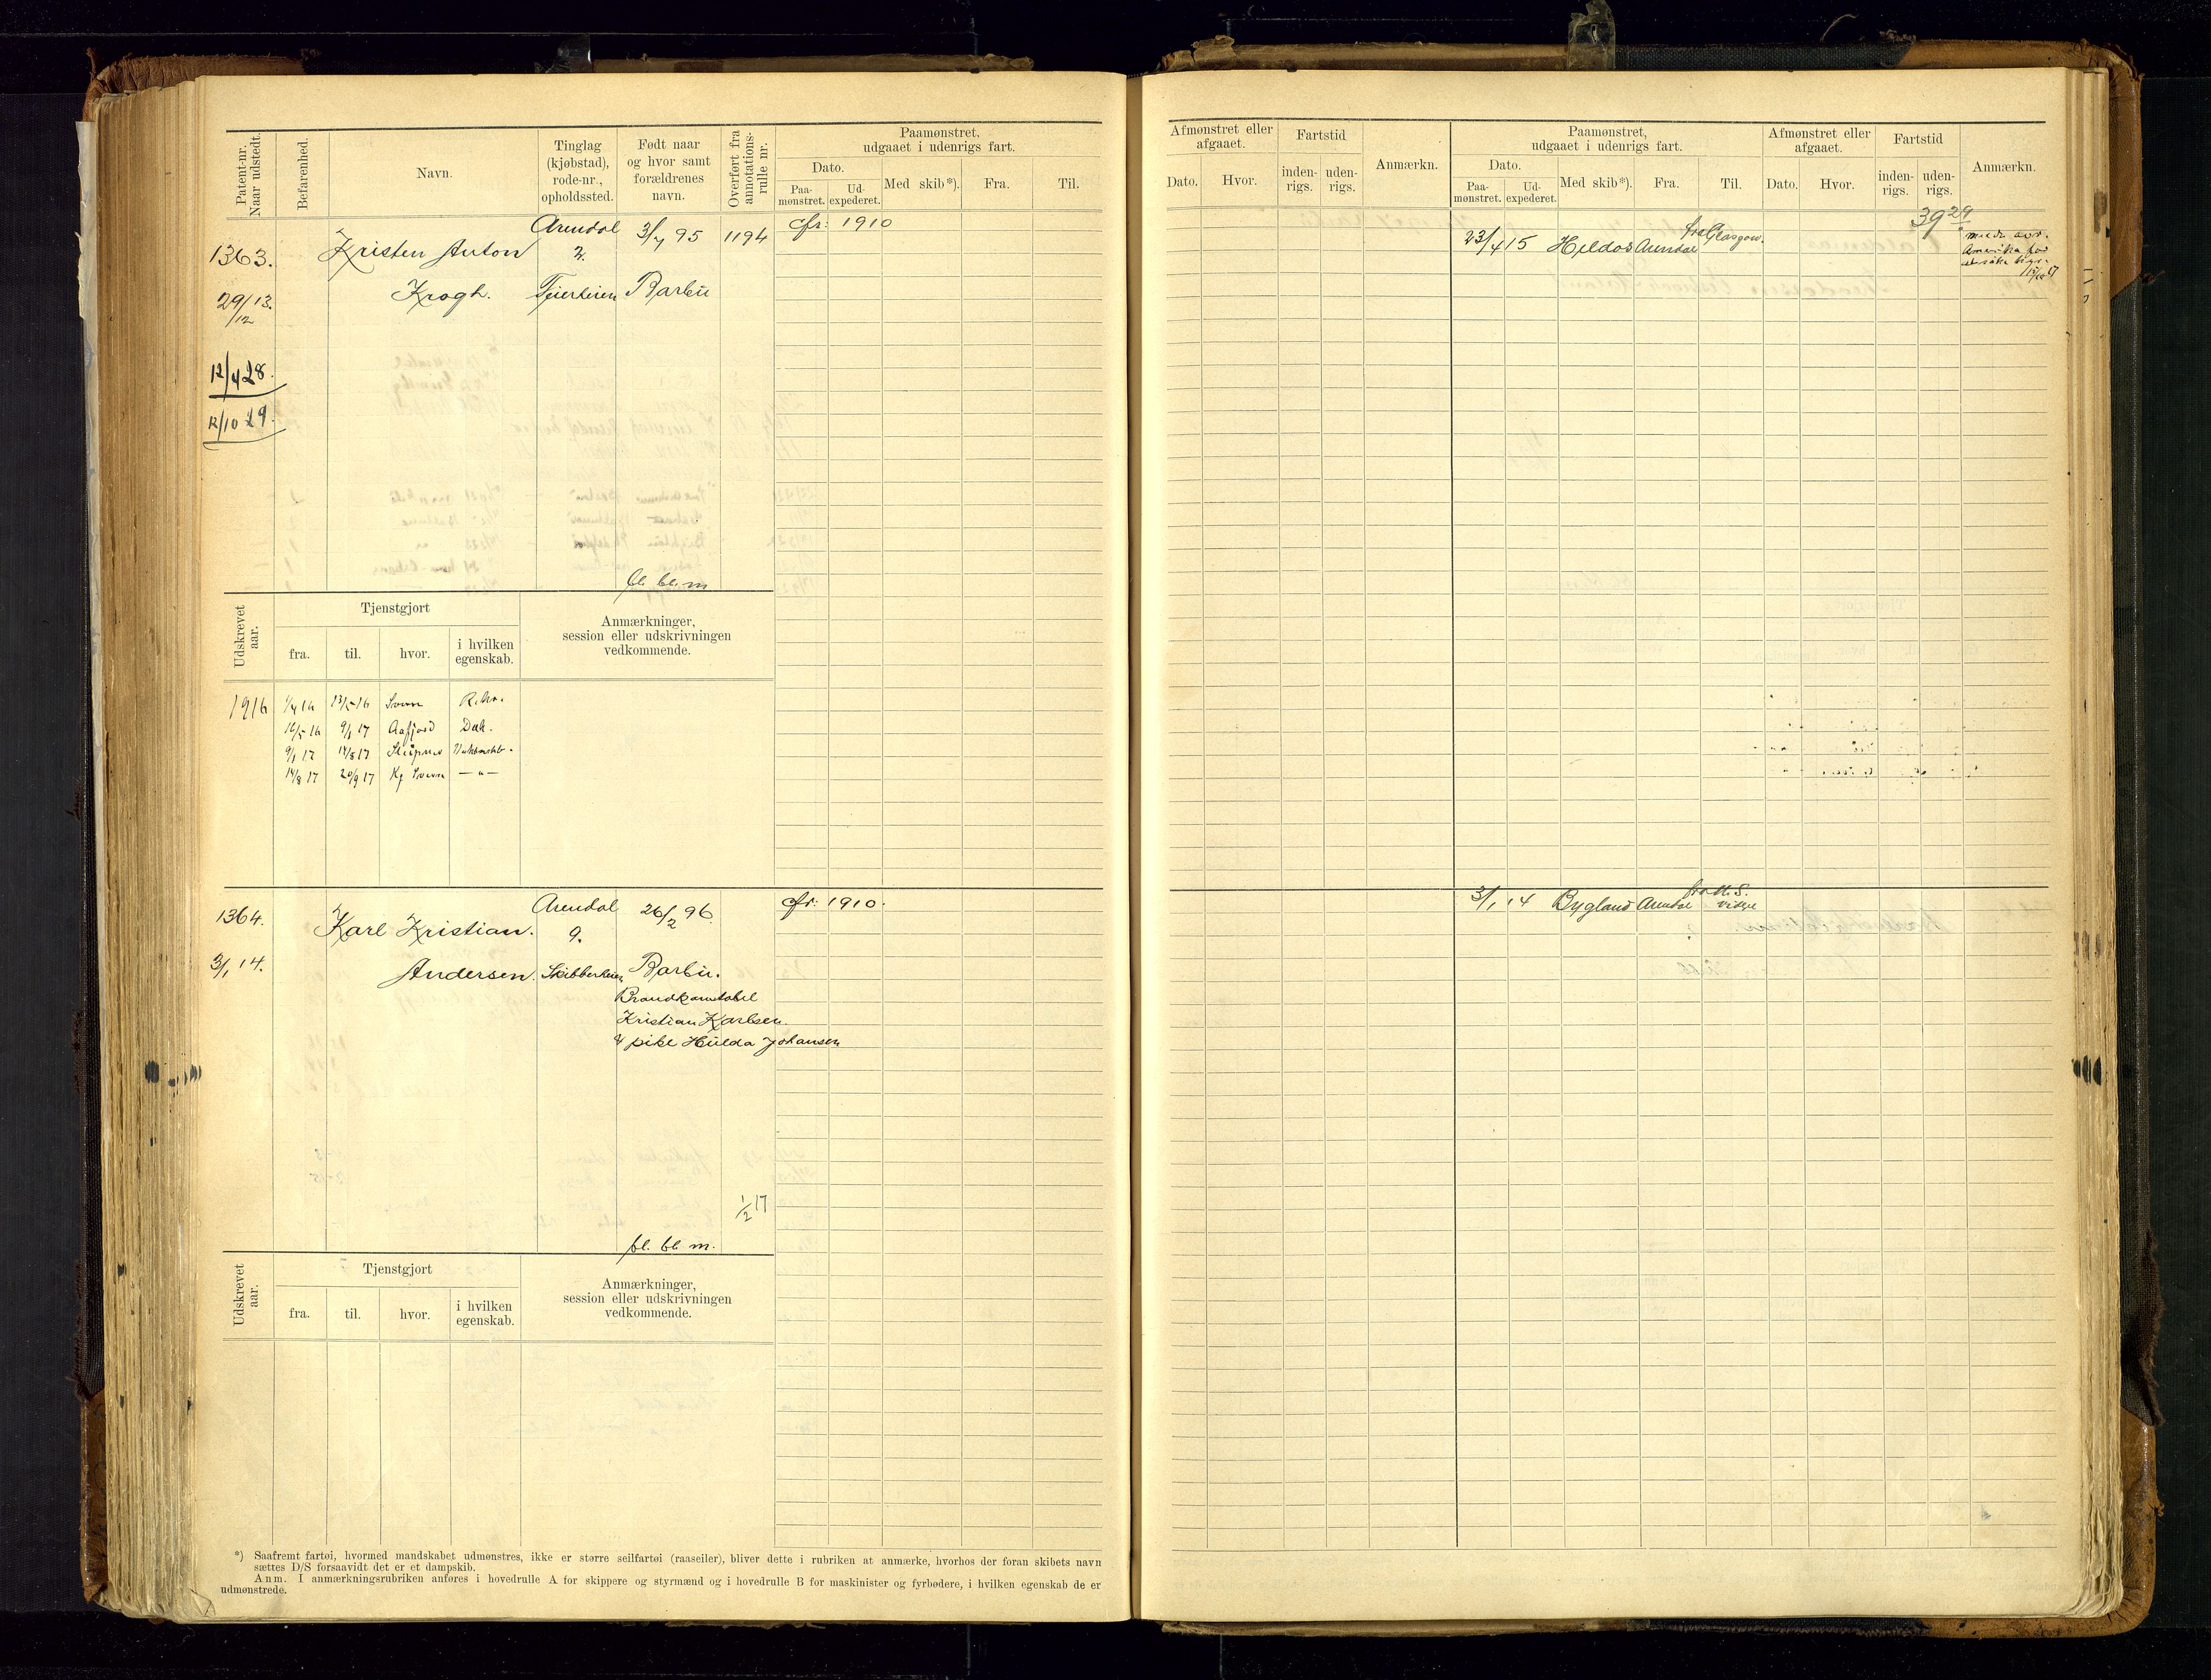 Patent-nr. Naar udstedt.
Befarenhed.
Navn.
Tinglag (kjøbstad), rode-nr., opholdssted.
Født naar og hvor samt forældrenes navn.
Overført fra annotations-rulle nr.
Paamønstret, udgaaet i udenrigs fart.
Dato.
Paa-mønstret.
Ud-expederet.
Med skib*).
Fra.
Til.
1363.
29/12 13.
12/4 28.
12/10 29.
Kristen Anton
Krogh.
Arendal
2.
Feierheien
3/7 95
Barbu
1194
cfr: 1910
bl. bl. m
Udskrevet aar.
Tjenstgjort
fra.
til.
hvor.
i hvilken egenskab.
Anmærkninger, session eller udskrivningen vedkommende.
1916
1/4 16 13/5 16
16/5 16 9/1 17 Aafjord Dæk.
9/1 17 14/8 17
14/8 17 20/9 17 — " —
1364.
3/1 14.
Karl Kristian.
Andersen.
Arendal
9.
Skibberheien
26/2 96
Barbu.
Brandkonstabel
Kristian Karlsen.
& pike Hulda Johansen
cfr: 1910.
1/2 17
bl. bl. m.
Udskrevet aar.
Tjenstgjort
fra.
til.
hvor.
i hvilken egenskab.
Anmærkninger, session eller udskrivningen vedkommende.
*) Saafremt fartøi, hvormed mandskabet udmønstres, ikke er større seilfartøi (raaseiler), bliver dette i rubriken at anmærke, hvorhos der foran skibets navn
sættes D/S forsaavidt det er et dampskib.
Anm. I anmærkningsrubriken anføres i hovedrulle A for skippere og styrmænd og i hovedrulle B for maskinister og fyrbødere, i hvilken egenskab de er
udmønstrede.
Afmønstret eller afgaaet.
Dato.
Hvor.
Fartstid
inden-rigs.
uden-rigs.
Anmærkn.
Paamønstret, udgaaet i udenrigs fart.
Dato.
Paa-mønstret.
Ud-expederet.
Med skib*).
Fra.
Til.
Afmønstret eller afgaaet.
Dato.
Hvor.
Fartstid
inden-rigs.
uden-rigs.
Anmærkn.
23/4 15 Hildos Arendal fra Glasgow.
39 29
Amerika for
3/1 14 Bygland Arendal